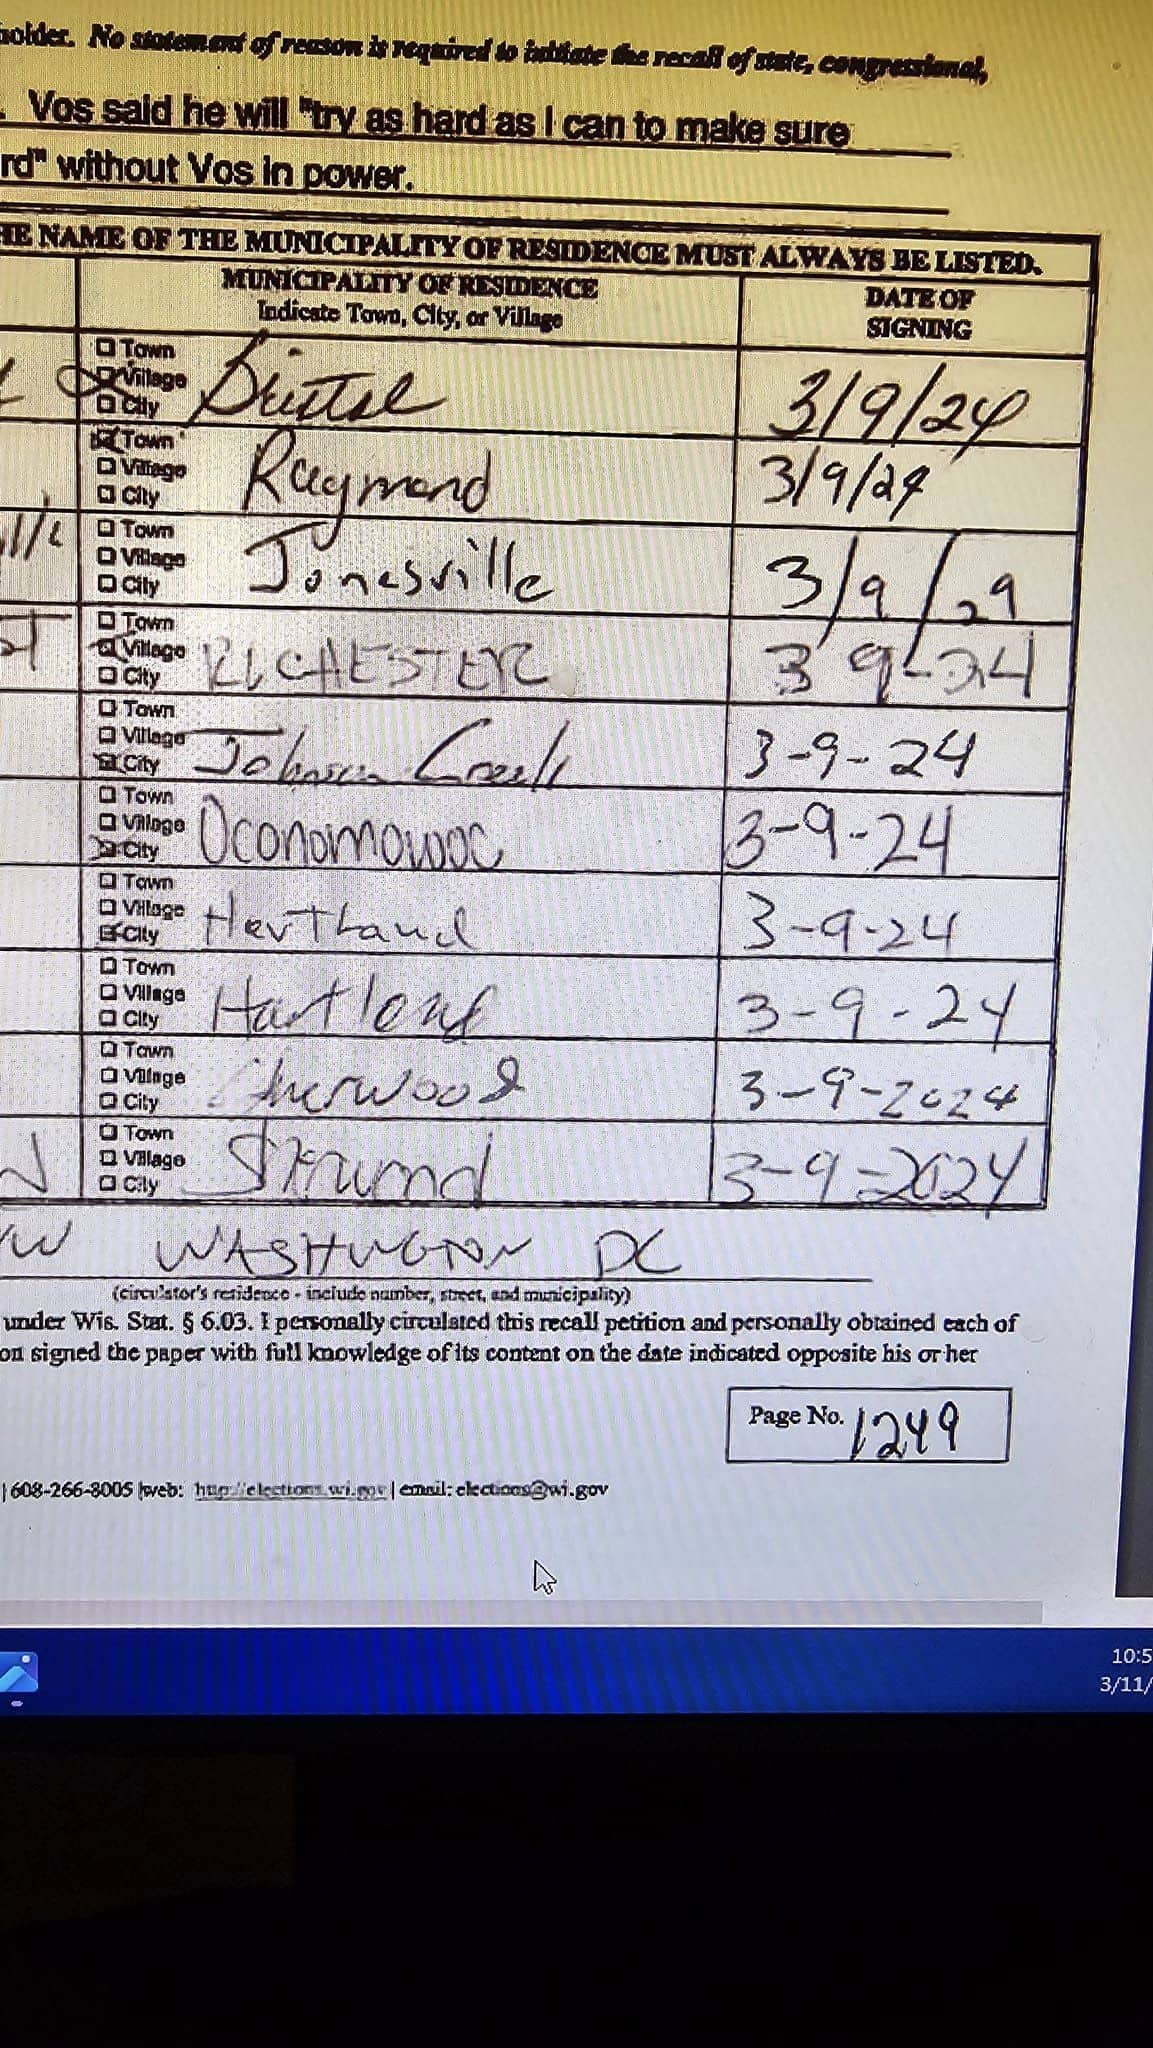 holder. No statement of reason is required to initiate the recall of state, congressional,
Vos said he will "try as hard as I can to make sure
rd" without Vos in power.
HE NAME OF THE MUNICIPALITY OF RESIDENCE MUST ALWAYS BE LISTED.
MUNICIPALITY OF RESIDENCE
Indicate Town, City, or Village
DATE OF
SIGNING
Town
Village
City
Bristol
3/9/24
Town
Village
City
Raymond
3/9/24
Town
Village
City
Jonesville
3/9/29
Town
Village
City
3 9-24
Town
Village
City
Johnson Creek
3-9-24
Town
Village
City
Oconomowoc
3-9-24
Town
Village
City
Hartland
3-9-24
Town
Village
City
Hartland
3-9-24
Town
Village
City
Sherwood
3-9-2024
Town
Village
City
3-9-2024
WASHINGTON DC
(circulator's residence - include number, street, and municipality)
under Wis. Stat. § 6.03. I personally circulated this recall petition and personally obtained each of
on signed the paper with full knowledge of its content on the date indicated opposite his or her
Page No. 1249
| 608-266-8005 | web: http://elections.wi.gov | email: elections@wi.gov
10:5
3/11/